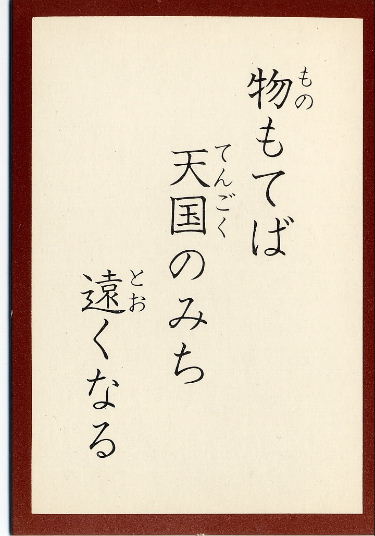 物もてば
天国のみち
遠くなる
もの
てんごく
とお